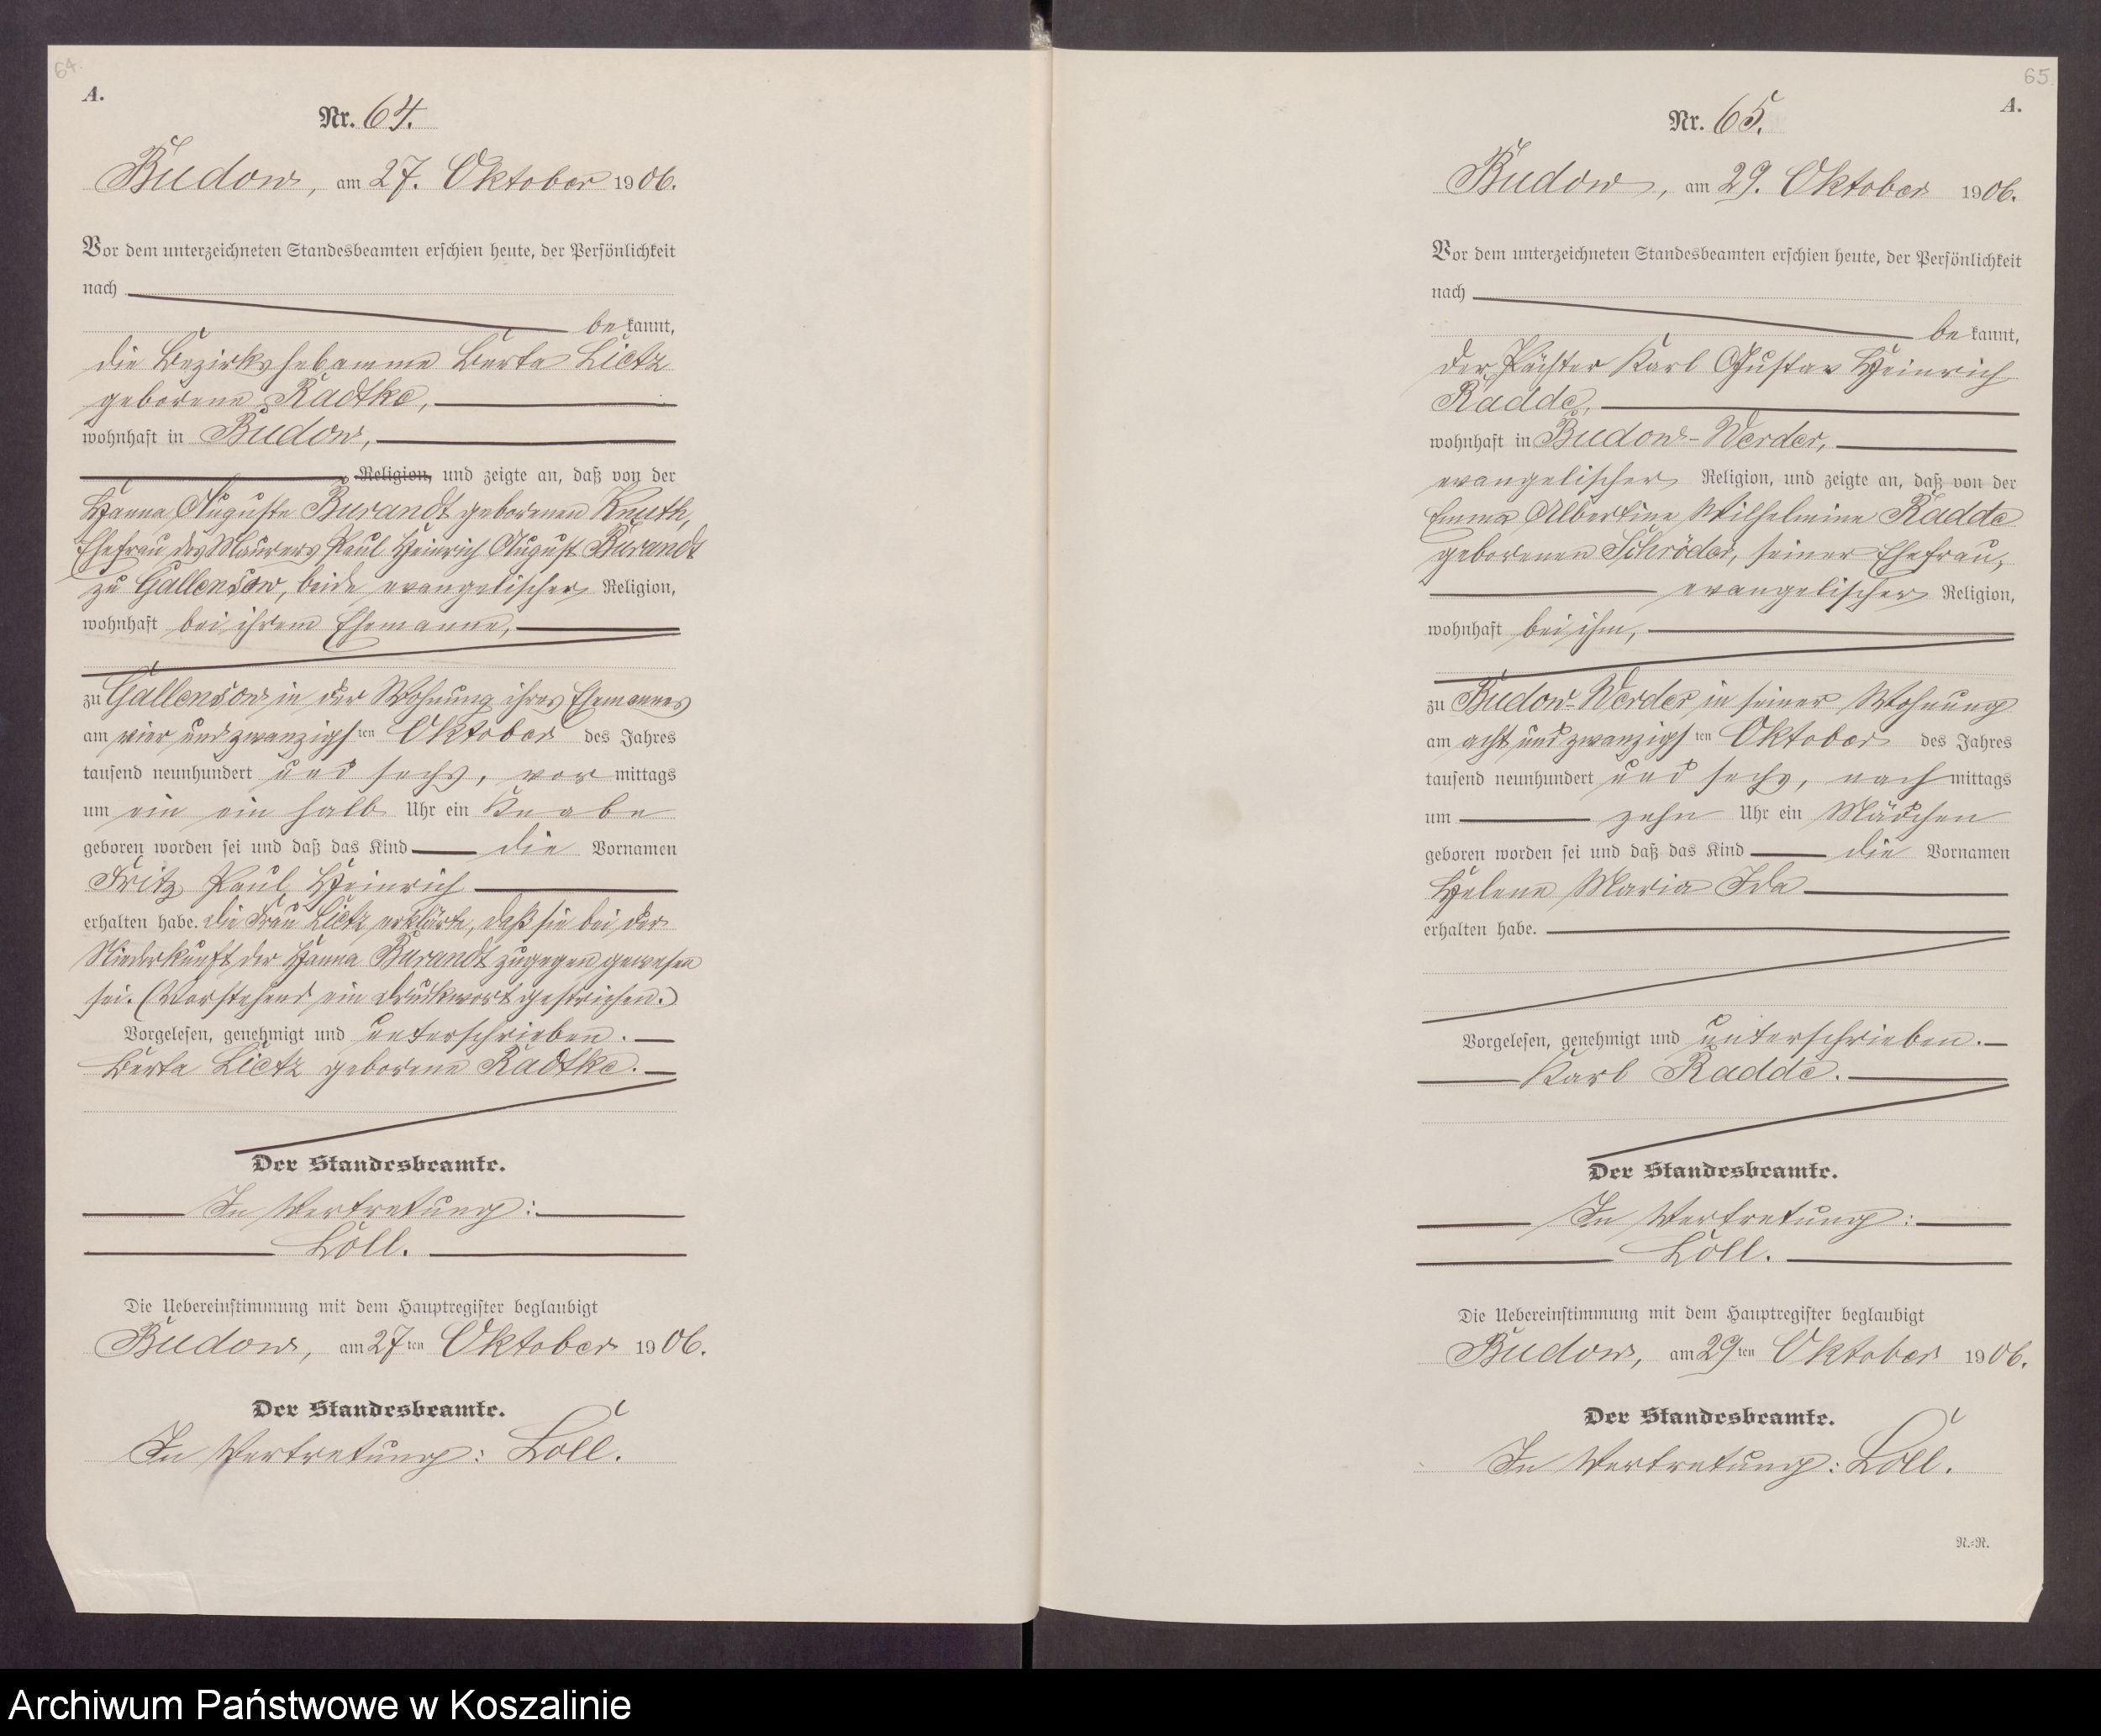 64.
A.
Nr. 64.
Budow, am 27. Oktober 1906.
Vor dem unterzeichneten Standesbeamten erschien heute, der Persönlichkeit
nach
bekannt,
die Bezirkshebamme Berta Lietz
geborene Radtke,
wohnhaft in Budow,
Religion, und zeigte an, daß von der
Hanna Auguste Burandt geborenen Knuth,
Ehefrau des Maurers Paul Heinrich August Burandt
zu Gallensow, beide evangelischer Religion,
wohnhaft bei ihrem Ehemanne,
zu Gallensow in der Wohnung ihres Ehemannes
am vier und zwanzigsten Oktober des Jahres
tausend neunhundert und sechs, vormittags
um ein ein halb Uhr ein Knabe
geboren worden sei und daß das Kind die Vornamen
Fritz Paul Heinrich
erhalten habe. Die Frau Lietz erklärte, daß sie bei der
Niederkunft der Hanna Burandt zugegen gewesen
sei. (Vorstehend ein Druckwort gestrichen.)
Vorgelesen, genehmigt und unterschrieben.
Berta Lietz geborene Radtke.
Der Standesbeamte.
In Vertretung:
Löll.
Die Uebereinstimmung mit dem Hauptregister beglaubigt
Budow, am 27ten Oktober 1906.
Der Standesbeamte.
In Vertretung: Löll.
65.
A.
Nr. 65.
Budow, am 29. Oktober 1906.
Vor dem unterzeichneten Standesbeamten erschien heute, der Persönlichkeit
nach
bekannt,
der Pächter Karl Gustav Heinrich
Radde,
wohnhaft in Budow-Werder,
evangelischer Religion, und zeigte an, daß von der
Emma Albertine Wilhelmine Radde
geborenen Schröder, seiner Ehefrau,
evangelischer Religion,
wohnhaft bei ihm,
zu Budow-Werder in seiner Wohnung
am acht und zwanzigsten Oktober des Jahres
tausend neunhundert und sechs, nachmittags
um zehn Uhr ein Mädchen
geboren worden sei und daß das Kind die Vornamen
Helene Maria Ida
erhalten habe.
Vorgelesen, genehmigt und unterschrieben.
Karl Radde.
Der Standesbeamte.
In Vertretung:
Löll.
Die Uebereinstimmung mit dem Hauptregister beglaubigt
Budow, am 29ten Oktober 1906.
Der Standesbeamte.
In Vertretung: Löll.
N.=N.
Archiwum Państwowe w Koszalinie